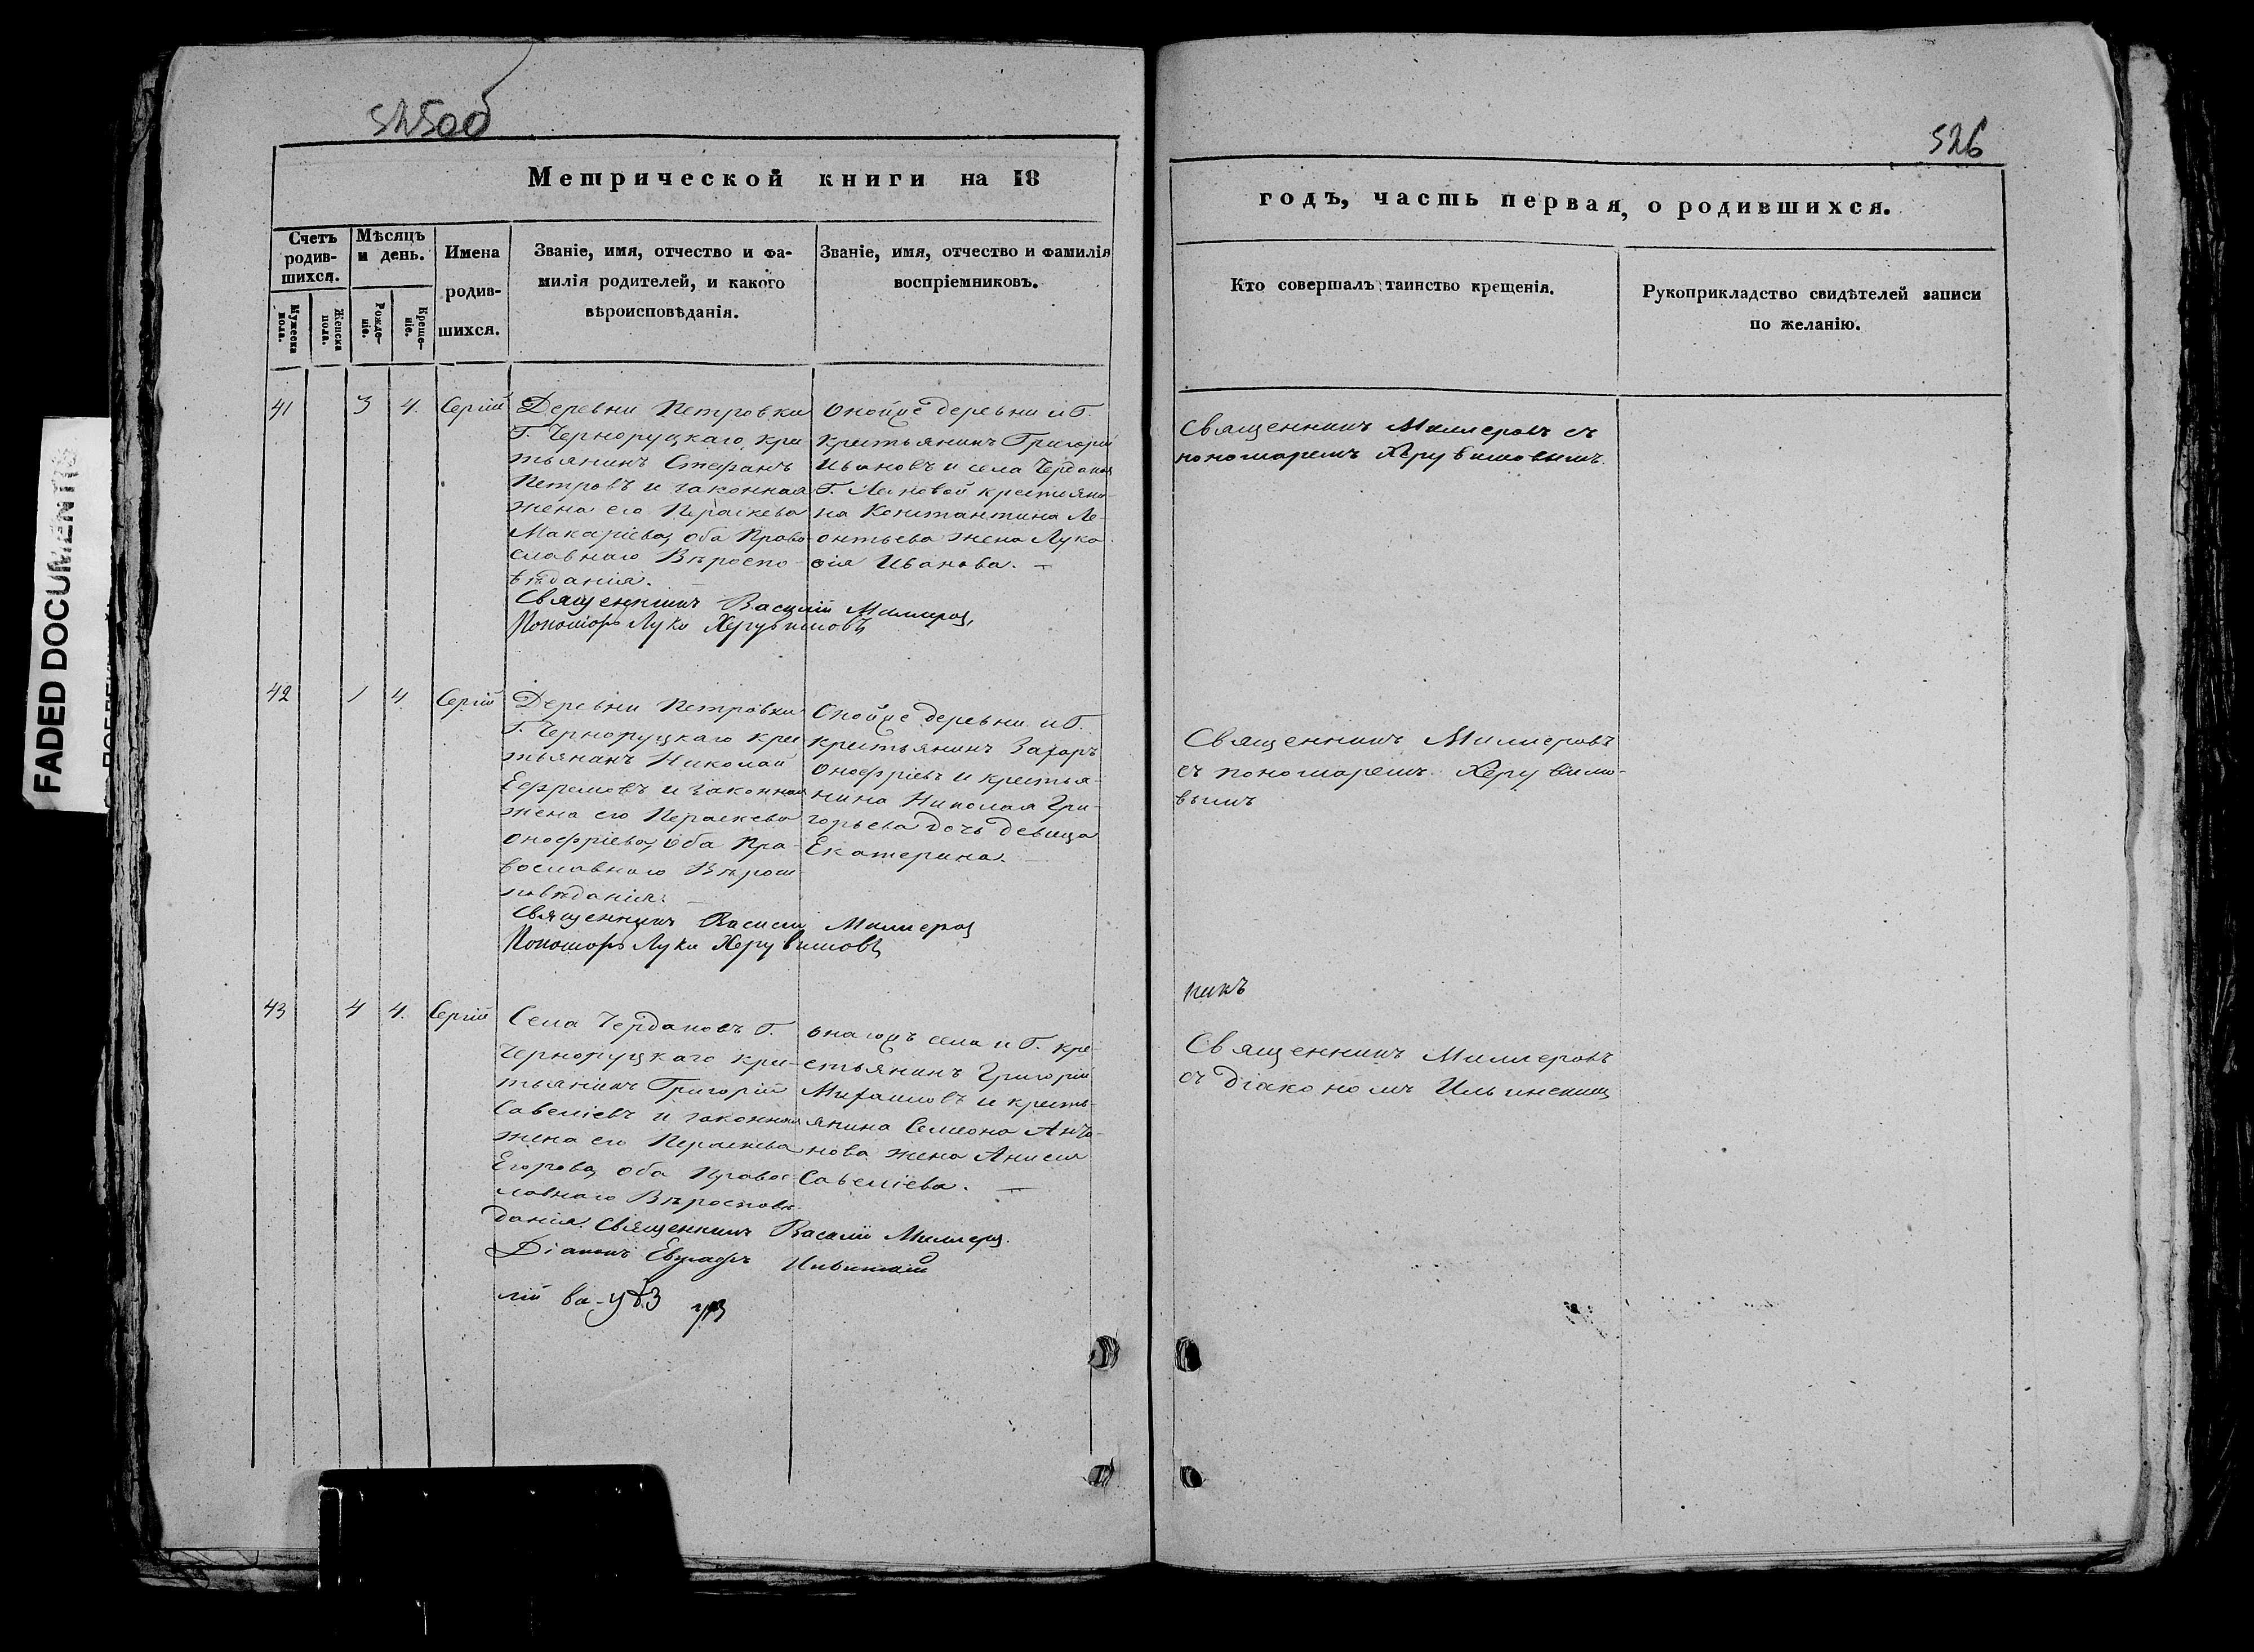 525об
526
FADED DOCUMENTS
Метрической книги на 18
годъ, часть первая, о родившихся.
Счетъ родив-
шихся.
Мужеска пола.
Женска пола.
Мѣсяцъ и день.
Рожде-
ніе.
Креще-
ніе.
Имена
родив-
шихся.
Званіе, имя, отчество и фа-
милія родителей, и какого
вѣроисповѣданія.
Званіе, имя, отчество и фамилія
воспріемниковъ.
Кто совершалъ таинство крещенія.
Рукоприкладство свидѣтелей записи
по желанію.
41
3
4.
Сергій
Деревни Петровки
Г. Черноруцкаго кре
тьянинъ Стефанъ
Петровъ и законная
жена его Параскева
Макаріева, оба Право
славнаго Вѣроиспо-
вѣданія.
Священникъ Василій Миллеровъ
Пономарь Лука Херувимовъ
Онойже деревни и Г.
крестьянинъ Григорій
Ивановъ и села Чердаковъ
Г. крестьяни-
на Константина Ле-
онтьева жена Лука
Иванова. —
Священникъ Миллеровъ съ
пономаремъ Херувимовымъ.
42
1
4
Сергій
Деревни Петровки
Г. Черноруцкаго крес
тьянинъ Николай
Ефремовъ и законная
жена его Параскева
Онофріева, оба Пра-
вославнаго Вѣроис
повѣданія. —
Священникъ Василій Миллеровъ
Пономарь Лука Херувимовъ
Онойже деревни и Г.
крестьянинъ Захаръ
Онофріевъ и крестья-
нина Николая Гри-
горьева дочь девица
Екатерина. —
Священникъ Миллеровъ
съ пономаремъ Херувимо-
вымъ
43
4
4.
Сергій
Села Чердаковъ Г.
Черноруцкаго кре-
тьянинъ Григорій
Савеліевъ и законная
жена его Параскева
Егорова, оба Правос
лавнаго Вѣроисповѣ
данія. Священникъ Василій Миллеровъ.
Діаконъ Евграфъ
онагожъ села и Г. кре
стьянинъ Григорій
Михаиловъ и кресть-
янина Семиона
нова жена Анисия
Савеліева. —
никъ
Священникъ Миллеровъ
съ діакономъ Ильинскимъ